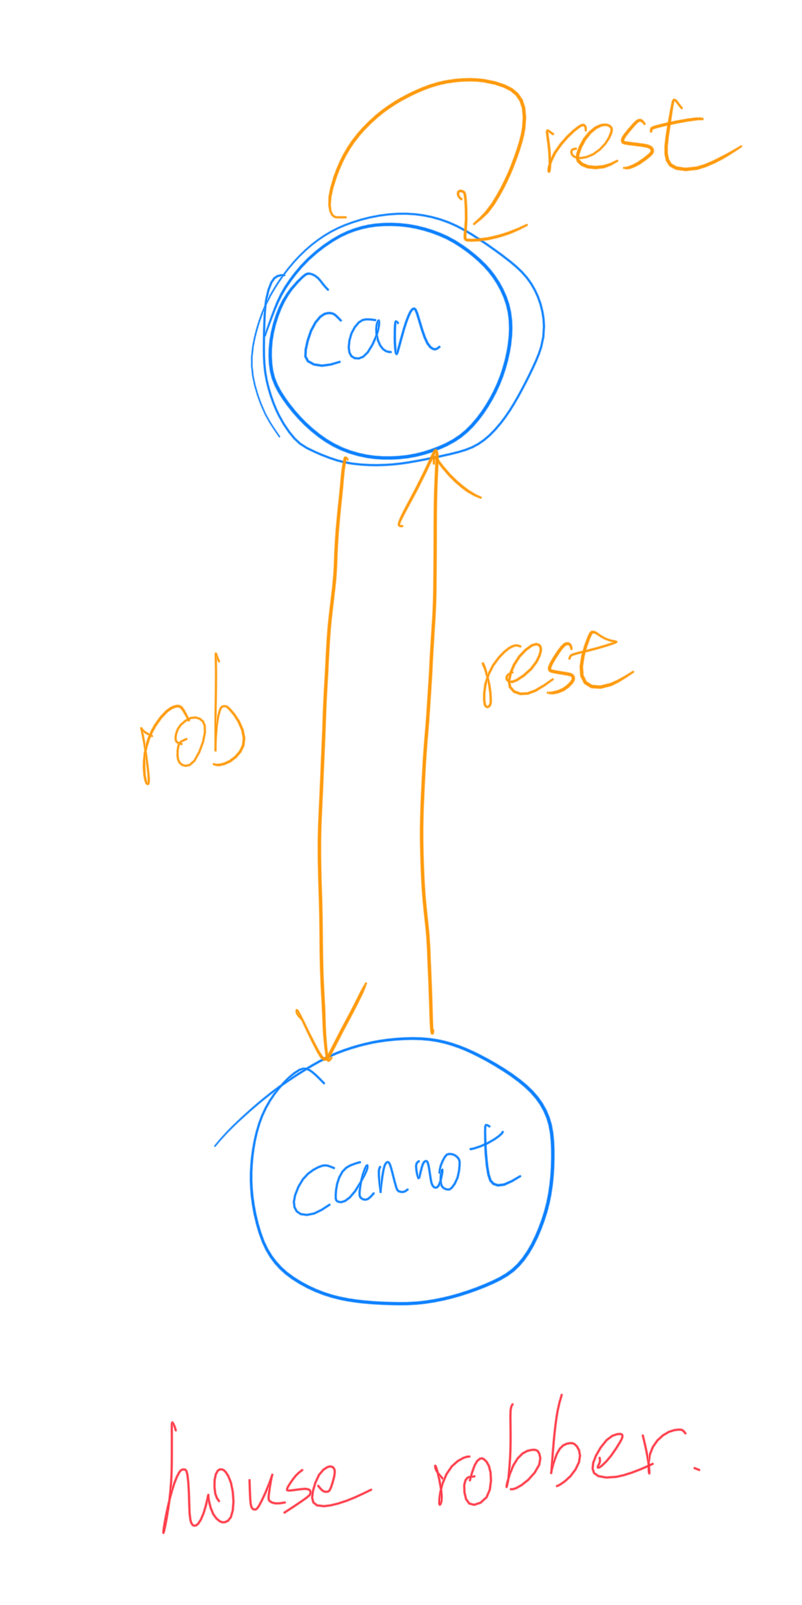 rest
can
rest
rob
cannot
house robber.